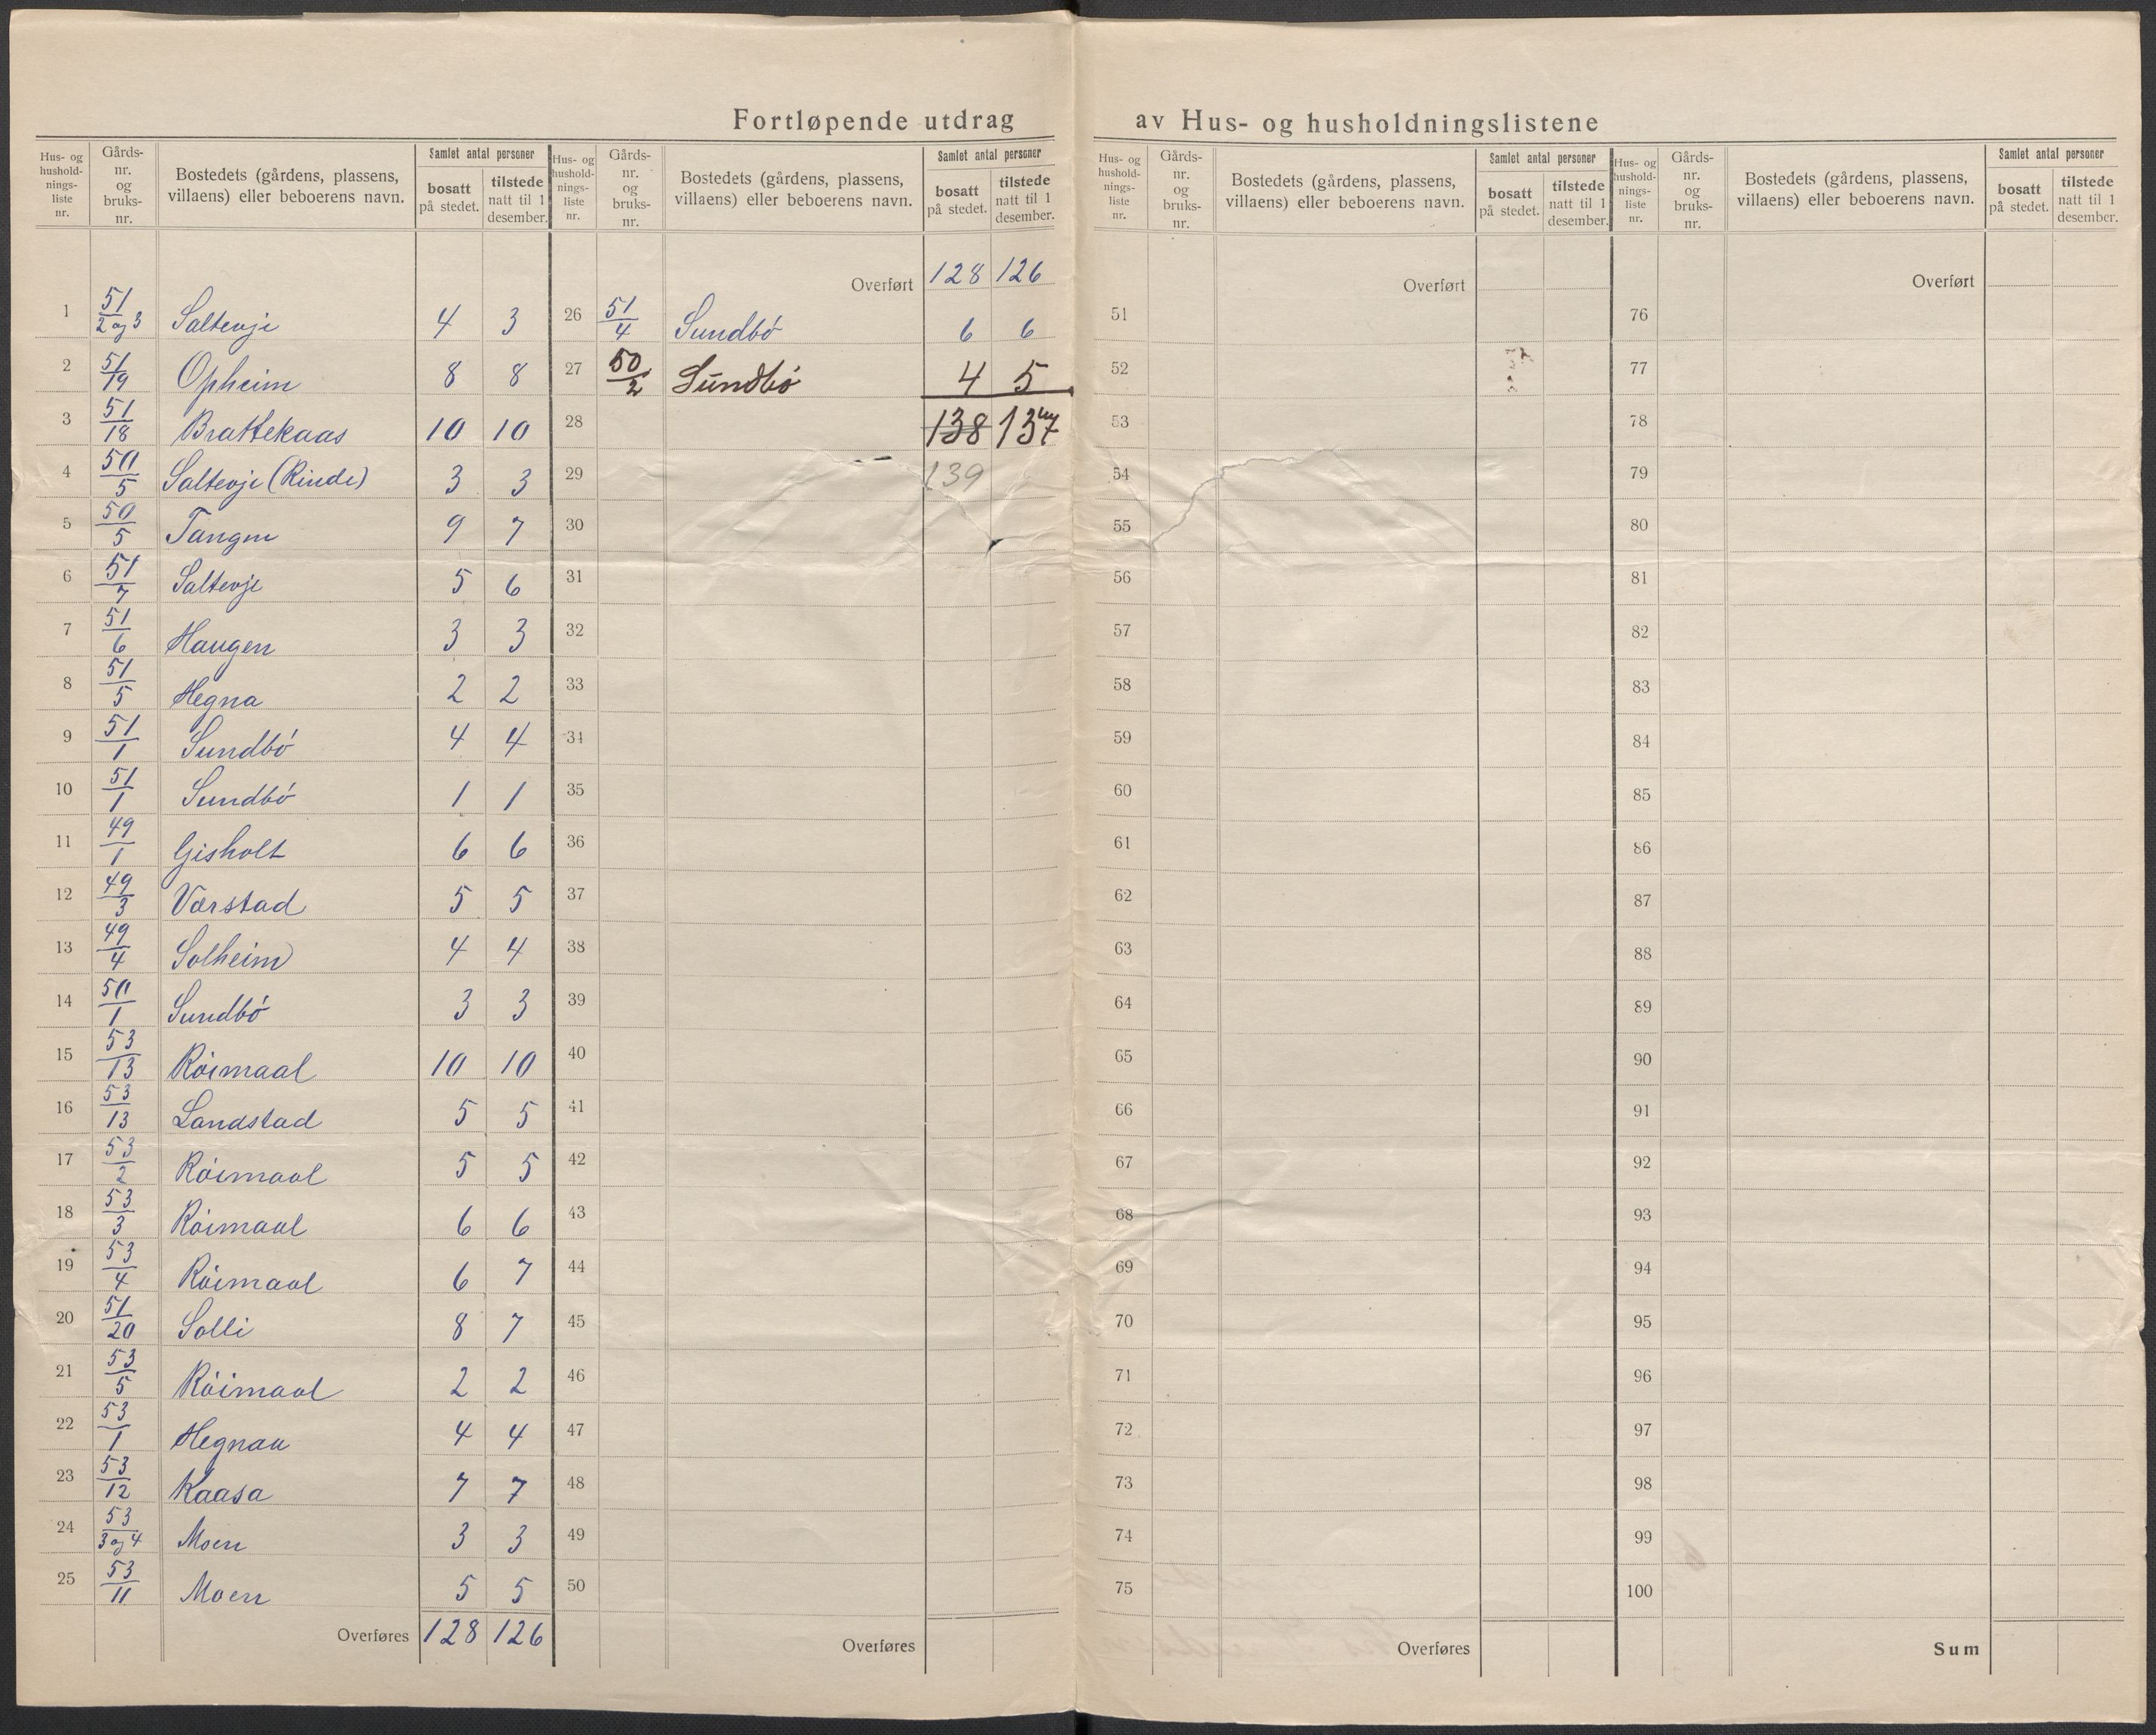 Fortløpende utdrag av Hus- og husholdningslistene
Hus- og hushold-nings-liste nr. Gårds-nr. og bruks-nr. Bostedets (gårdens, plassens, villaens) eller beboerens navn. Samlet antal personer bosatt på stedet. tilstede natt til 1 desember.
1 51/2 og 3 Saltevje 4 3
2 51/19 Opheim 8 8
3 51/18 Brattekaas 10 10
4 50/5 Saltevje (Rinde) 3 3
5 50/5 Tangen 9 7
6 51/7 Saltevje 5 6
7 51/6 Haugen 3 3
8 51/5 Hegna 2 2
9 51/1 Sundbó 4 4
10 51/1 Sundbó 1 1
11 49/1 Gisholt 6 6
12 49/3 Værstad 5 5
13 49/4 Solheim 4 4
14 50/1 Sundbó 3 3
15 53/13 Róimaal 10 10
16 53/13 Landstad 5 5
17 53/2 Róimaal 5 5
18 53/3 Róimaal 6 6
19 53/4 Róimaal 6 7
20 51/20 Solli 8 7
21 53/5 Róimaal 2 2
22 53/1 Hegnau 4 4
23 53/12 Kaasa 7 7
24 53/3 og 4 Moen 3 3
25 53/11 Moen 5 5
Overføres 128 126
Hus- og hushold-nings-liste nr. Gårds-nr. og bruks-nr. Bostedets (gårdens, plassens, villaens) eller beboerens navn. Samlet antal personer bosatt på stedet. tilstede natt til 1 desember.
Overført 128 126
26 51/4 Sundbó 6 6
27 50/2 Sundbó 4 5
28 138 137
29 139
30
31
32
33
34
35
36
37
38
39
40
41
42
43
44
45
46
47
48
49
50
Overføres
Hus- og hushold-nings-liste nr. Gårds-nr. og bruks-nr. Bostedets (gårdens, plassens, villaens) eller beboerens navn. Samlet antal personer bosatt på stedet. tilstede natt til 1 desember.
Overført
51
52
53
54
55
56
57
58
59
60
61
62
63
64
65
66
67
68
69
70
71
72
73
74
75
Overføres
Hus- og hushold-nings-liste nr. Gårds-nr. og bruks-nr. Bostedets (gårdens, plassens, villaens) eller beboerens navn. Samlet antal personer bosatt på stedet. tilstede natt til 1 desember.
Overført
76
77
78
79
80
81
82
83
84
85
86
87
88
89
90
91
92
93
94
95
96
97
98
99
100
Sum